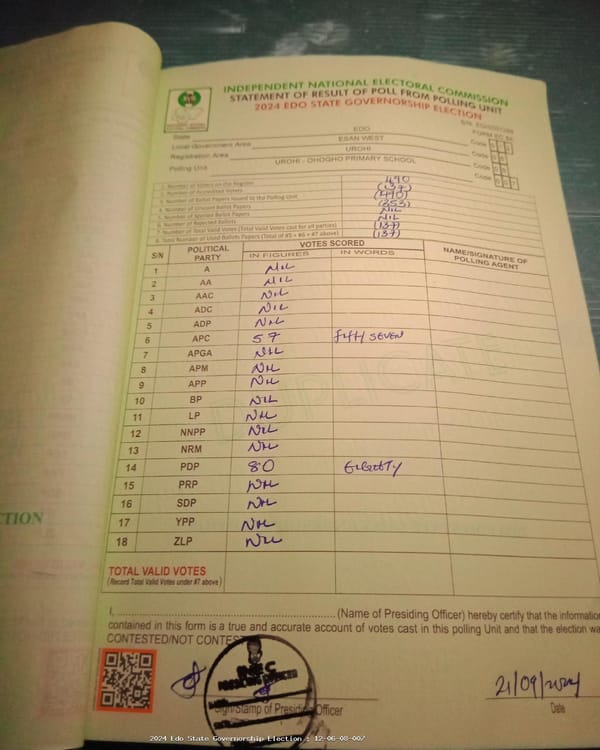 INDEPENDENT NATIONAL ELECTORAL COMMISSION
STATEMENT OF RESULT OF POLL FROM POLLING UNIT
2024 EDO STATE GOVERNORSHIP ELECTION
FORM EC 8A
State EDO Code
Local Government Area ESAN WEST Code
Registration Area UROHI Code
Polling Unit UROHI - OHOGHO PRIMARY SCHOOL Code
1. Number of Voters on the Register 490
2. Number of Accredited Voters (137)
3. Number of Ballot Papers Issued to the Polling Unit (490)
4. Number of Unused Ballot Papers (353)
5. Number of Spoiled Ballot Papers NIL
6. Number of Rejected Ballots NIL
7. Number of Total Valid Votes (Total Valid Votes cast for all parties) (137)
8. Total Number of Used Ballot Papers (Total of #5 + #6 + #7 above) (137)
S/N POLITICAL PARTY VOTES SCORED NAME/SIGNATURE OF POLLING AGENT
IN FIGURES IN WORDS
1 A NIL
2 AA NIL
3 AAC NIL
4 ADC NIL
5 ADP NIL
6 APC 57 fifty SEVEN
7 APGA NIL
8 APM NIL
9 APP NIL
10 BP NIL
11 LP NIL
12 NNPP NIL
13 NRM NIL
14 PDP 80 EIGHTY
15 PRP NIL
16 SDP NIL
17 YPP NIL
18 ZLP NIL
DUPLICATE
TOTAL VALID VOTES
(Record Total Valid Votes under #7 above)
I, (Name of Presiding Officer) hereby certify that the information
contained in this form is a true and accurate account of votes cast in this polling Unit and that the election was
CONTESTED/NOT CONTEST
INEC
PRESIDING OFFICER
Sign/Stamp of Presiding Officer
21/09/2024
Date
CTION
2024 Edo State Governorship Election : 12-06-08-007